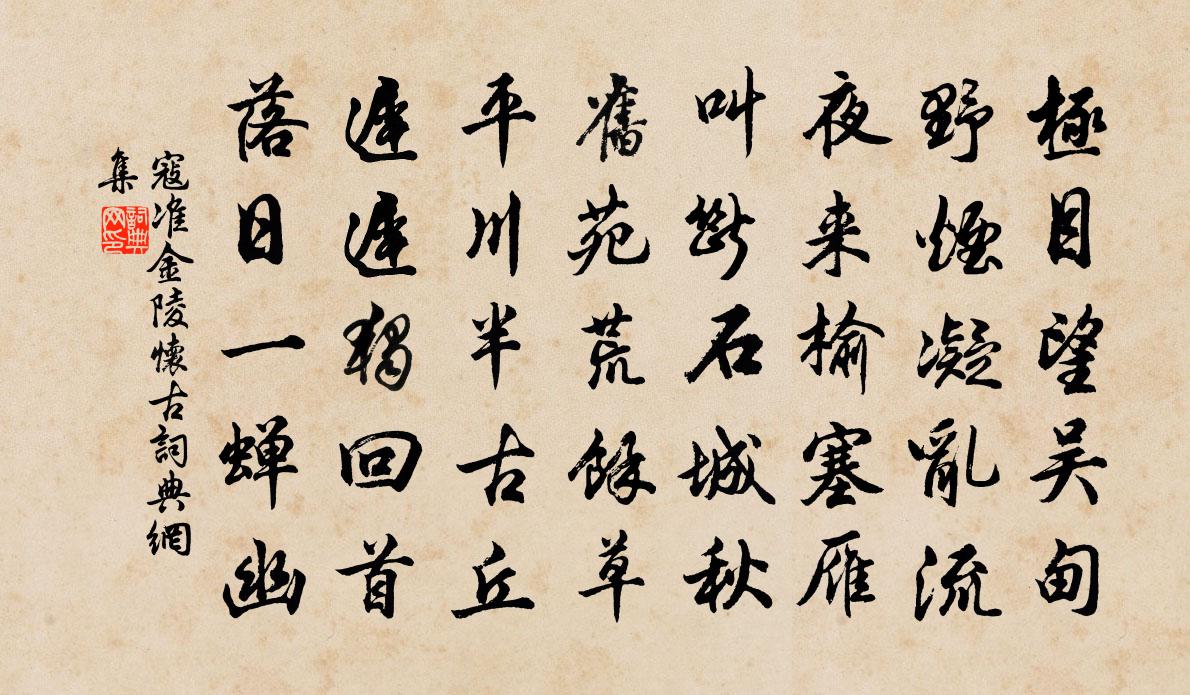 極目望吴甸
野煙凝亂流
夜来榆塞雁
叫斷石城秋
舊苑荒餘草
平川半古丘
遲遲獨回首
落日一蝉幽
寇准金陵懷古詞典網
集
詞典
网印